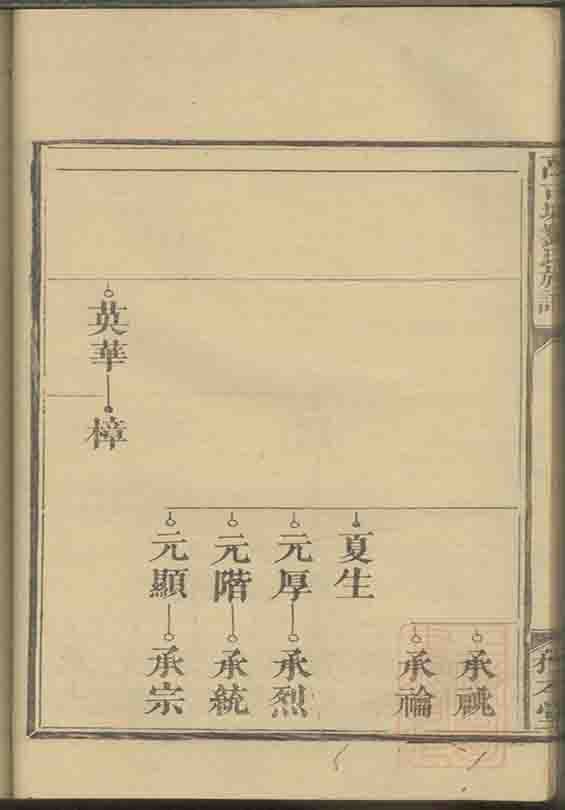 承祧
承禴
夏生
元厚 承烈
元階 承統
元顯 承宗
英華 樟